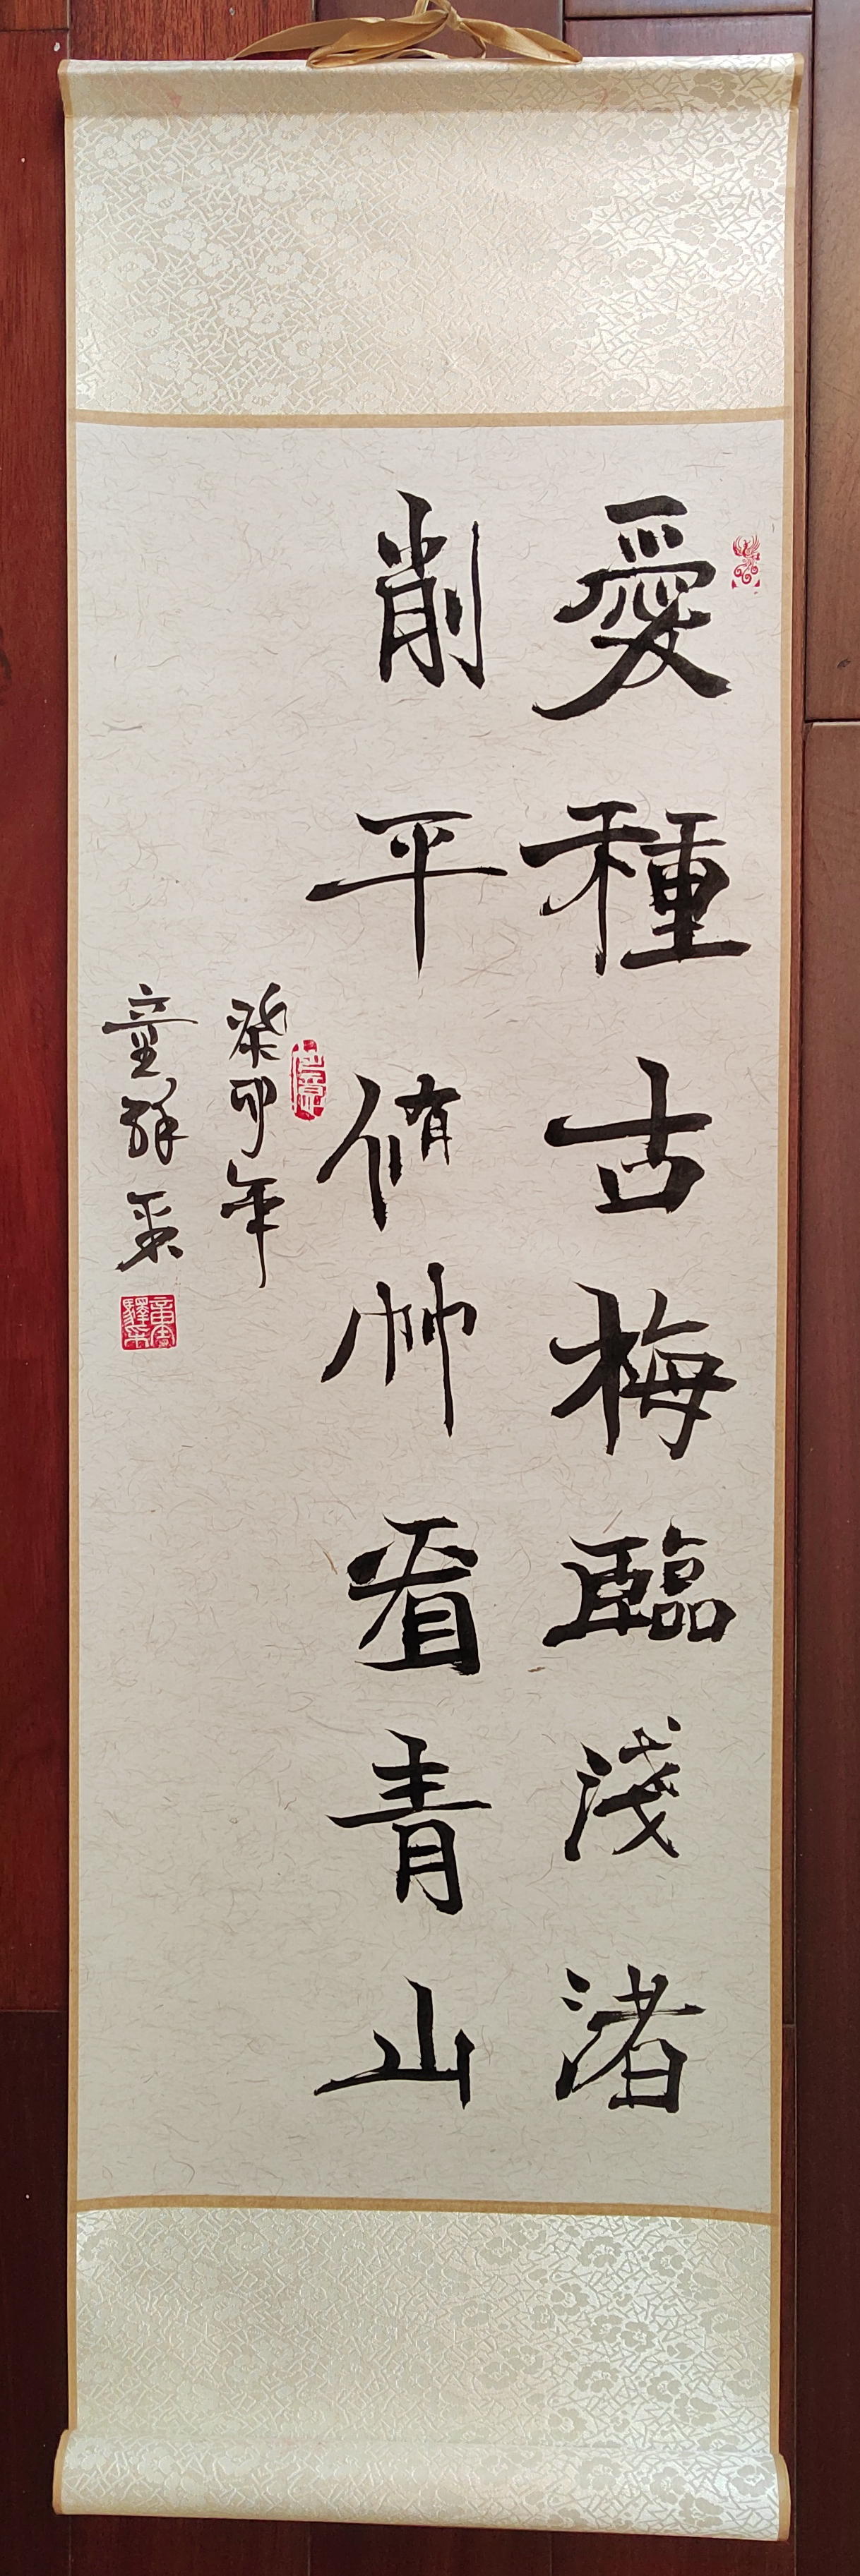 愛種古梅臨淺渚
削平脩竹看青山
癸卯年
童驛采